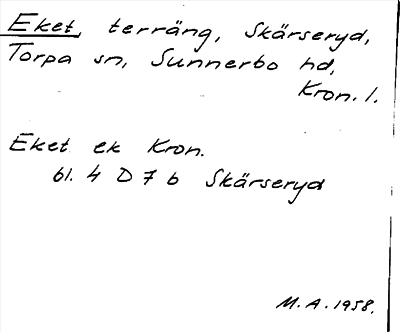 Eket, terräng, Skärseryd,
Torpa sn, Sunnerbo hd,
Kron. l.
Eket ek Kron.
bl. 4 D 7 b Skärseryd
M. A. 1958.